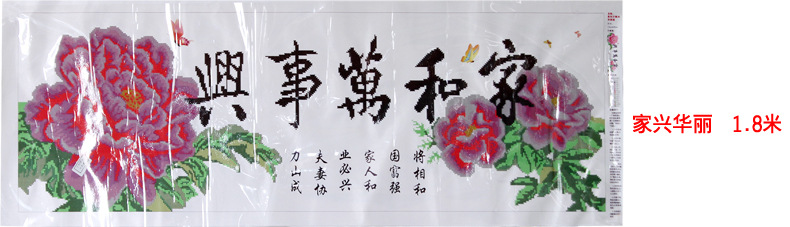 家和萬事興
将相和
国富强
家人和
业必兴
夫妻协
力山成
家兴华丽 1.8米